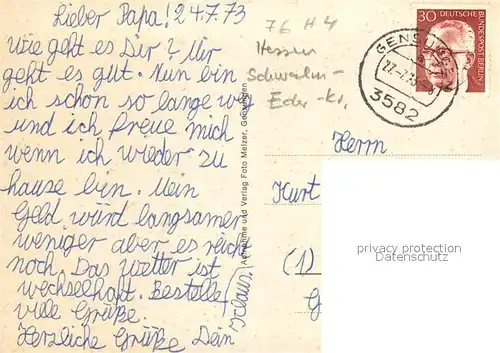 Lieber Papa! 24.7.73
Wie geht es Dir? Mir
geht es gut. Nun bin
ich schon so lange weg
und ich freue mich
wenn ich wieder zu
hause bin. Mein
Geld würd langsamer
weniger aber es reicht
noch. Das Wetter ist
wechselhaft. Bestelle
viele Grüße.
Herzliche Grüße Dein
Klaus.
76 H 4
Hessen
Schwalm-
Eder-Kr.
Aufnahme und Verlag Foto Melzer, Gensungen
30 DEUTSCHE BUNDESPOST BERLIN
GENSUNGEN
3582
Herrn
Kurt
(1)
privacy protection
Datenschutz